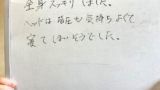 全身スッキリしました。
ヘッドは 気持ちよくて
寝てしまいそうでした。